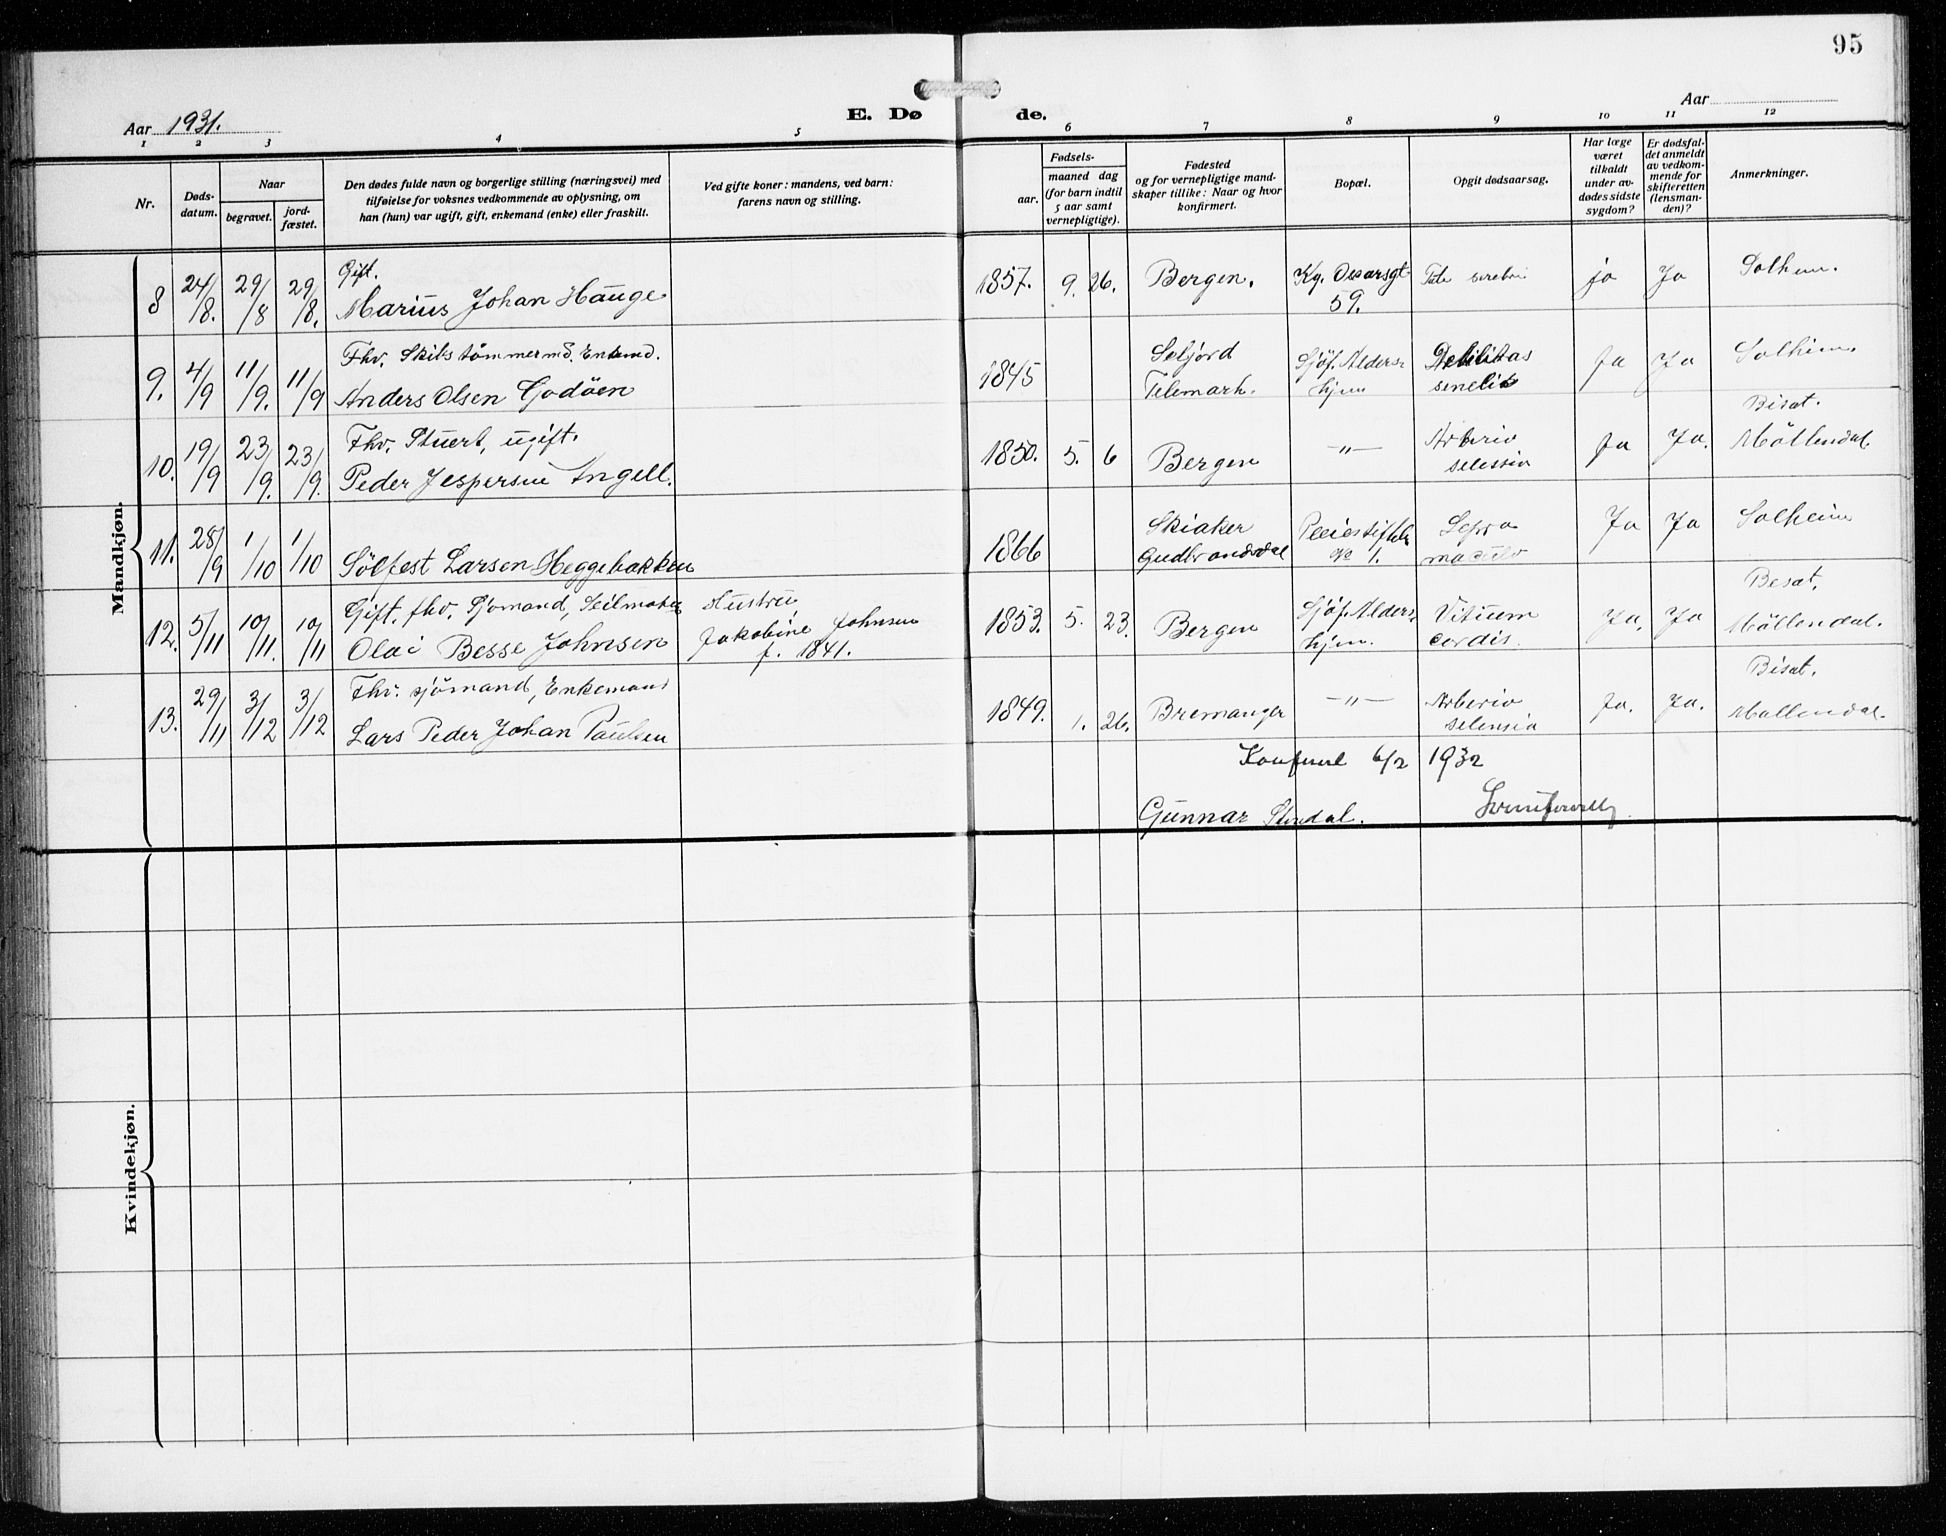 95
Aar 1931.
E. Døde.
Aar
1 2 3 4 5 6 7 8 9 10 11 12
Nr.
Døds-
datum.
Naar
begravet.
jord-
fæstet.
Den dødes fulde navn og borgerlige stilling (næringsvei) med
tilføielse for voksnes vedkommende av oplysning, om
han (hun) var ugift, gift, enkemand (enke) eller fraskilt.
Ved gifte koner: mandens, ved barn:
farens navn og stilling.
Fødsels-
aar. maaned dag
(for barn indtil
5 aar samt
vernepligtige).
Fødested
og for vernepligtige mand-
skaper tillike: Naar og hvor
konfirmert.
Bopæl.
Opgit dødsaarsag.
Har læge
været
tilkaldt
under av-
dødes sidste
sygdom?
Er dødsfal-
det anmeldt
av vedkom-
mende for
skifteretten
(lensman-
den)?
Anmerkninger.
Mandkjøn.
8 24/8. 29/8 29/8. Gift.
Marius Johan Hauge
1857. 9. 26. Bergen. Kg. Oscarsgt
59.
jo Ja Solheim.
9. 4/9 11/9. 11/9 Fhv. Skibstømmermd. Enkemd.
Anders Olsen Godøen
1845 Seljord
Telemark.
Sjøf. Alders-
hjem
Debilitas
senelis
Ja Ja Solheim.
10. 19/9 23/9. 23/9. Fhv. Stuert, ugift.
Peder Jespersen Angell.
1850. 5. 6 Bergen —"— Ja Ja. Bisat.
Møllendal
11. 28/9 1/10 1/10
Sølfest Larsen Heggebakken
1866 Skiaker
Gudbrandsdal
Pleiestiftels
No 1.
Lepra
Ja Ja Solheim
12. 5/11 10/11. 10/11 Gift. fhv. Sjømand, Seilmaker
Olai Besse Johnsen
Hustru
Jakobine Johnsen
f. 1841.
1853. 5. 23. Bergen Sjøf. Alders-
hjem.
Vitium
cordis.
Ja. Ja Besat.
Møllendal.
13. 29/11 3/12 3/12 Fhv. sjømand, Enkemand
Lars Peder Johan Paulsen
1849. 1. 26. Bremanger —"— Ja. Ja. Bisat.
Møllendal.
6/2 1932
Gunnar
Kvindekjøn.